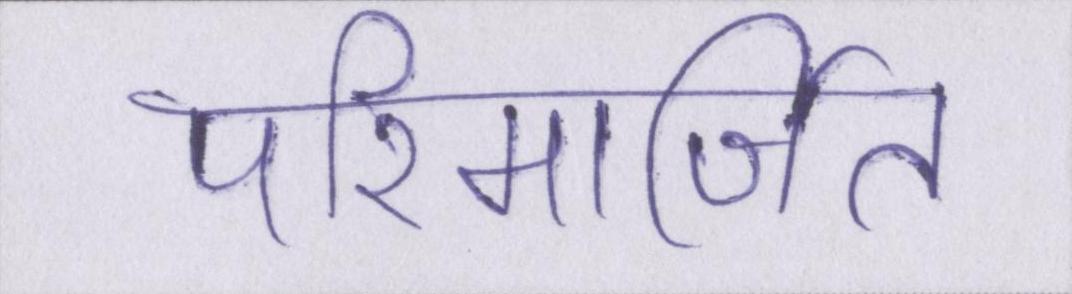 परिमार्जित